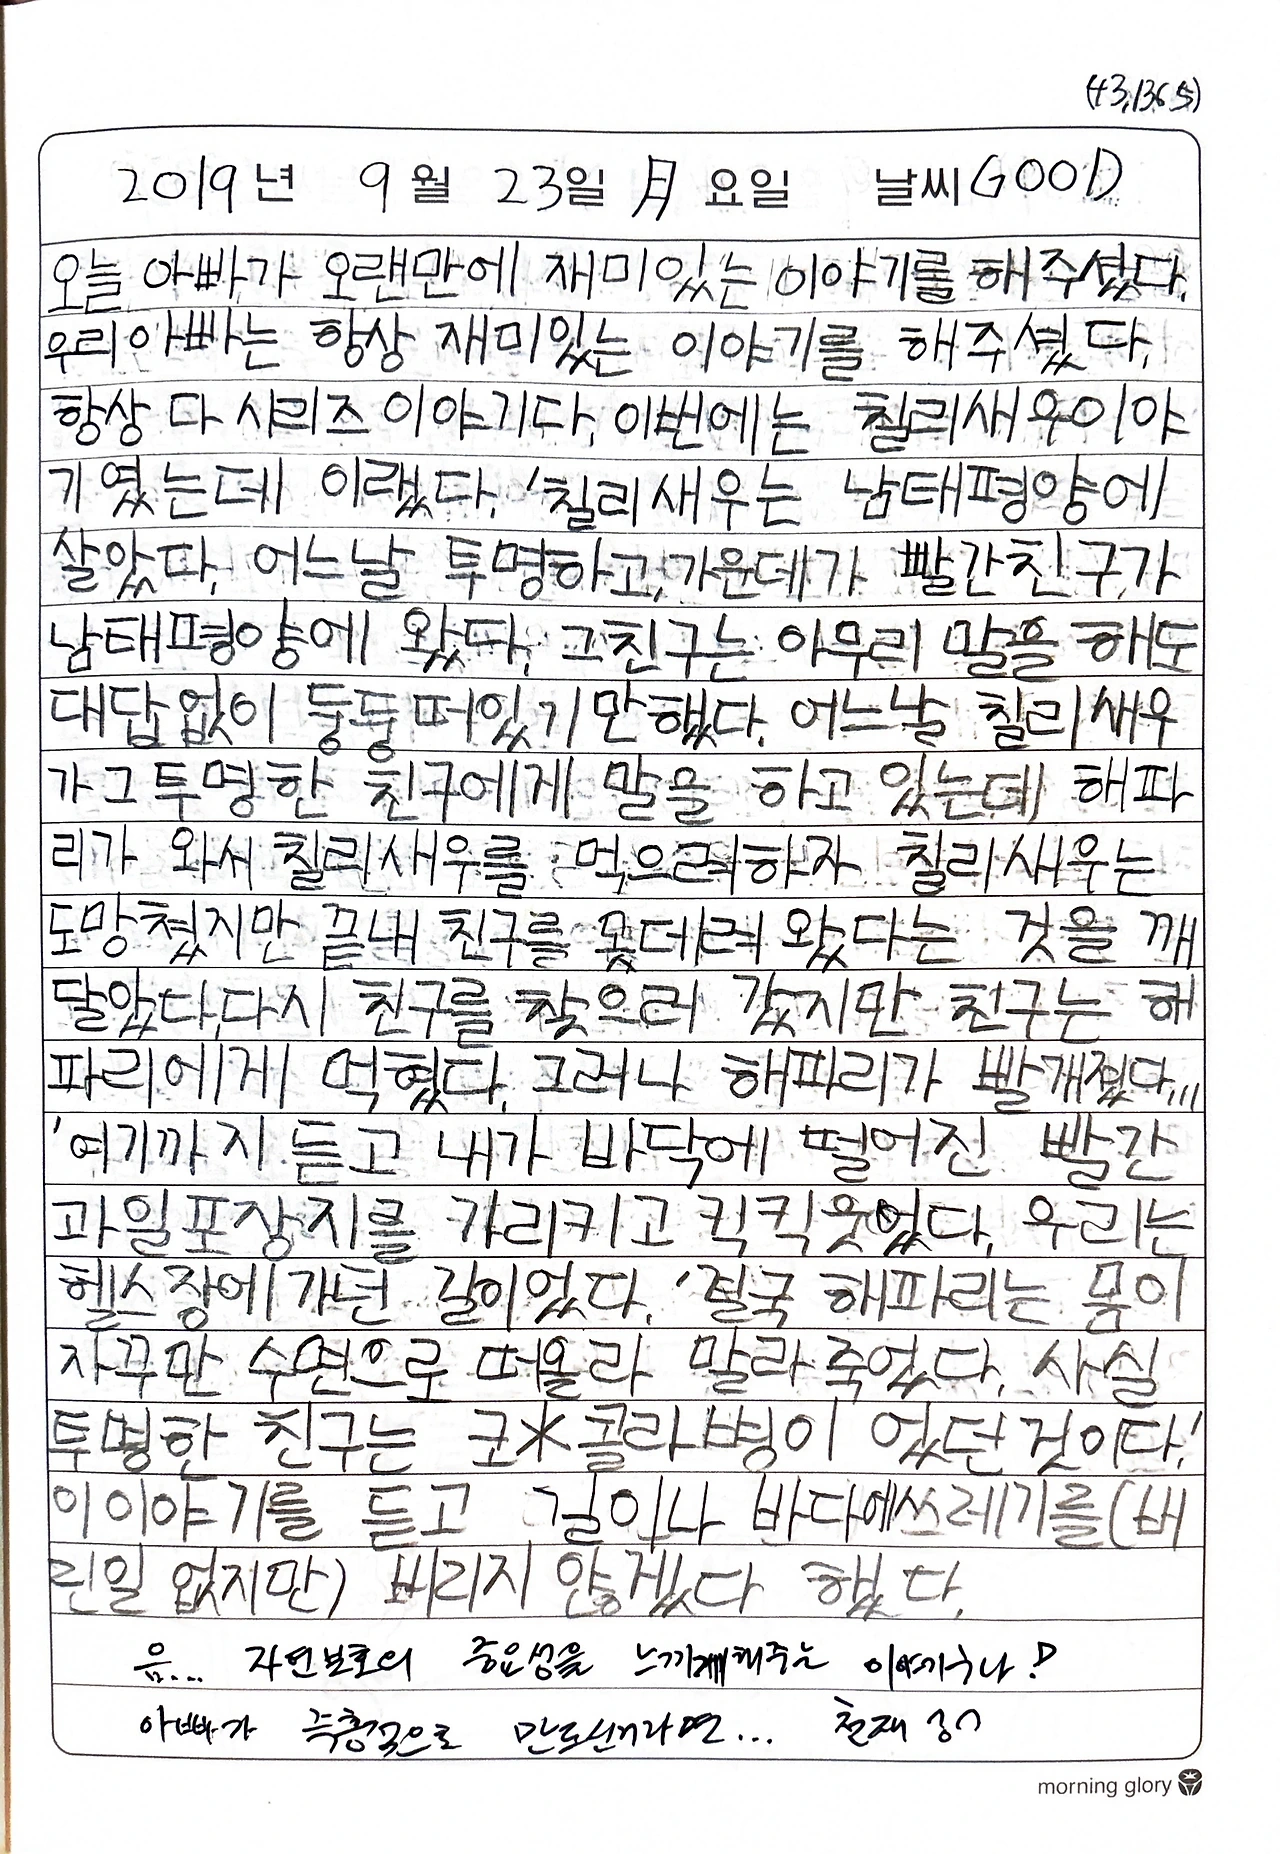 (43,136 5)
2019년 9월 23일 月요일 날씨 GOOD
오늘 아빠가 오랜만에 재미있는 이야기를 해주셨다.
우리아빠는 항상 재미있는 이야기를 해주셨다.
항상 다 시리즈 이야기다. 이번에는 칠리새우이야
기였는데 이랬다. '칠리새우는 남태평양에
살았다. 어느날 투명하고, 가운데가 빨간친구가
남태평양에 왔다. 그친구는 아무리 말을 해도
대답없이 둥둥떠있기만했다. 어느날 칠리새우
가그투명한 친구에게 말을 하고 있는데 해파
리가 와서 칠리새우를 먹으려하자 칠리새우는
도망쳤지만 끝내 친구를 못데려 왔다는 것을 깨
달았다.다시 친구를 찾으러 갔지만 친구는 해
파리에게 먹혔다. 그러나 해파리가 빨개졌다...
'여기까지 듣고 내가 바닥에 떨어진 빨간
과일포장지를 가리키고 킥킥웃었다. 우리는
헬스장에가던 길이었다. '결국 해파리는 몸이
자꾸만 수면으로 떠올라 말라죽었다. 사실
투명한 친구는 코*콜라병이 었던것이다.'
이이야기를 듣고 길이나 바다에쓰레기를(버
린일 없지만) 버리지 않겠다 했다.
음... 자연보호의 중요성을 느끼게해주는 이야기구나!
아빠가 즉흥적으로 만드신거라면... 천재
morning glory